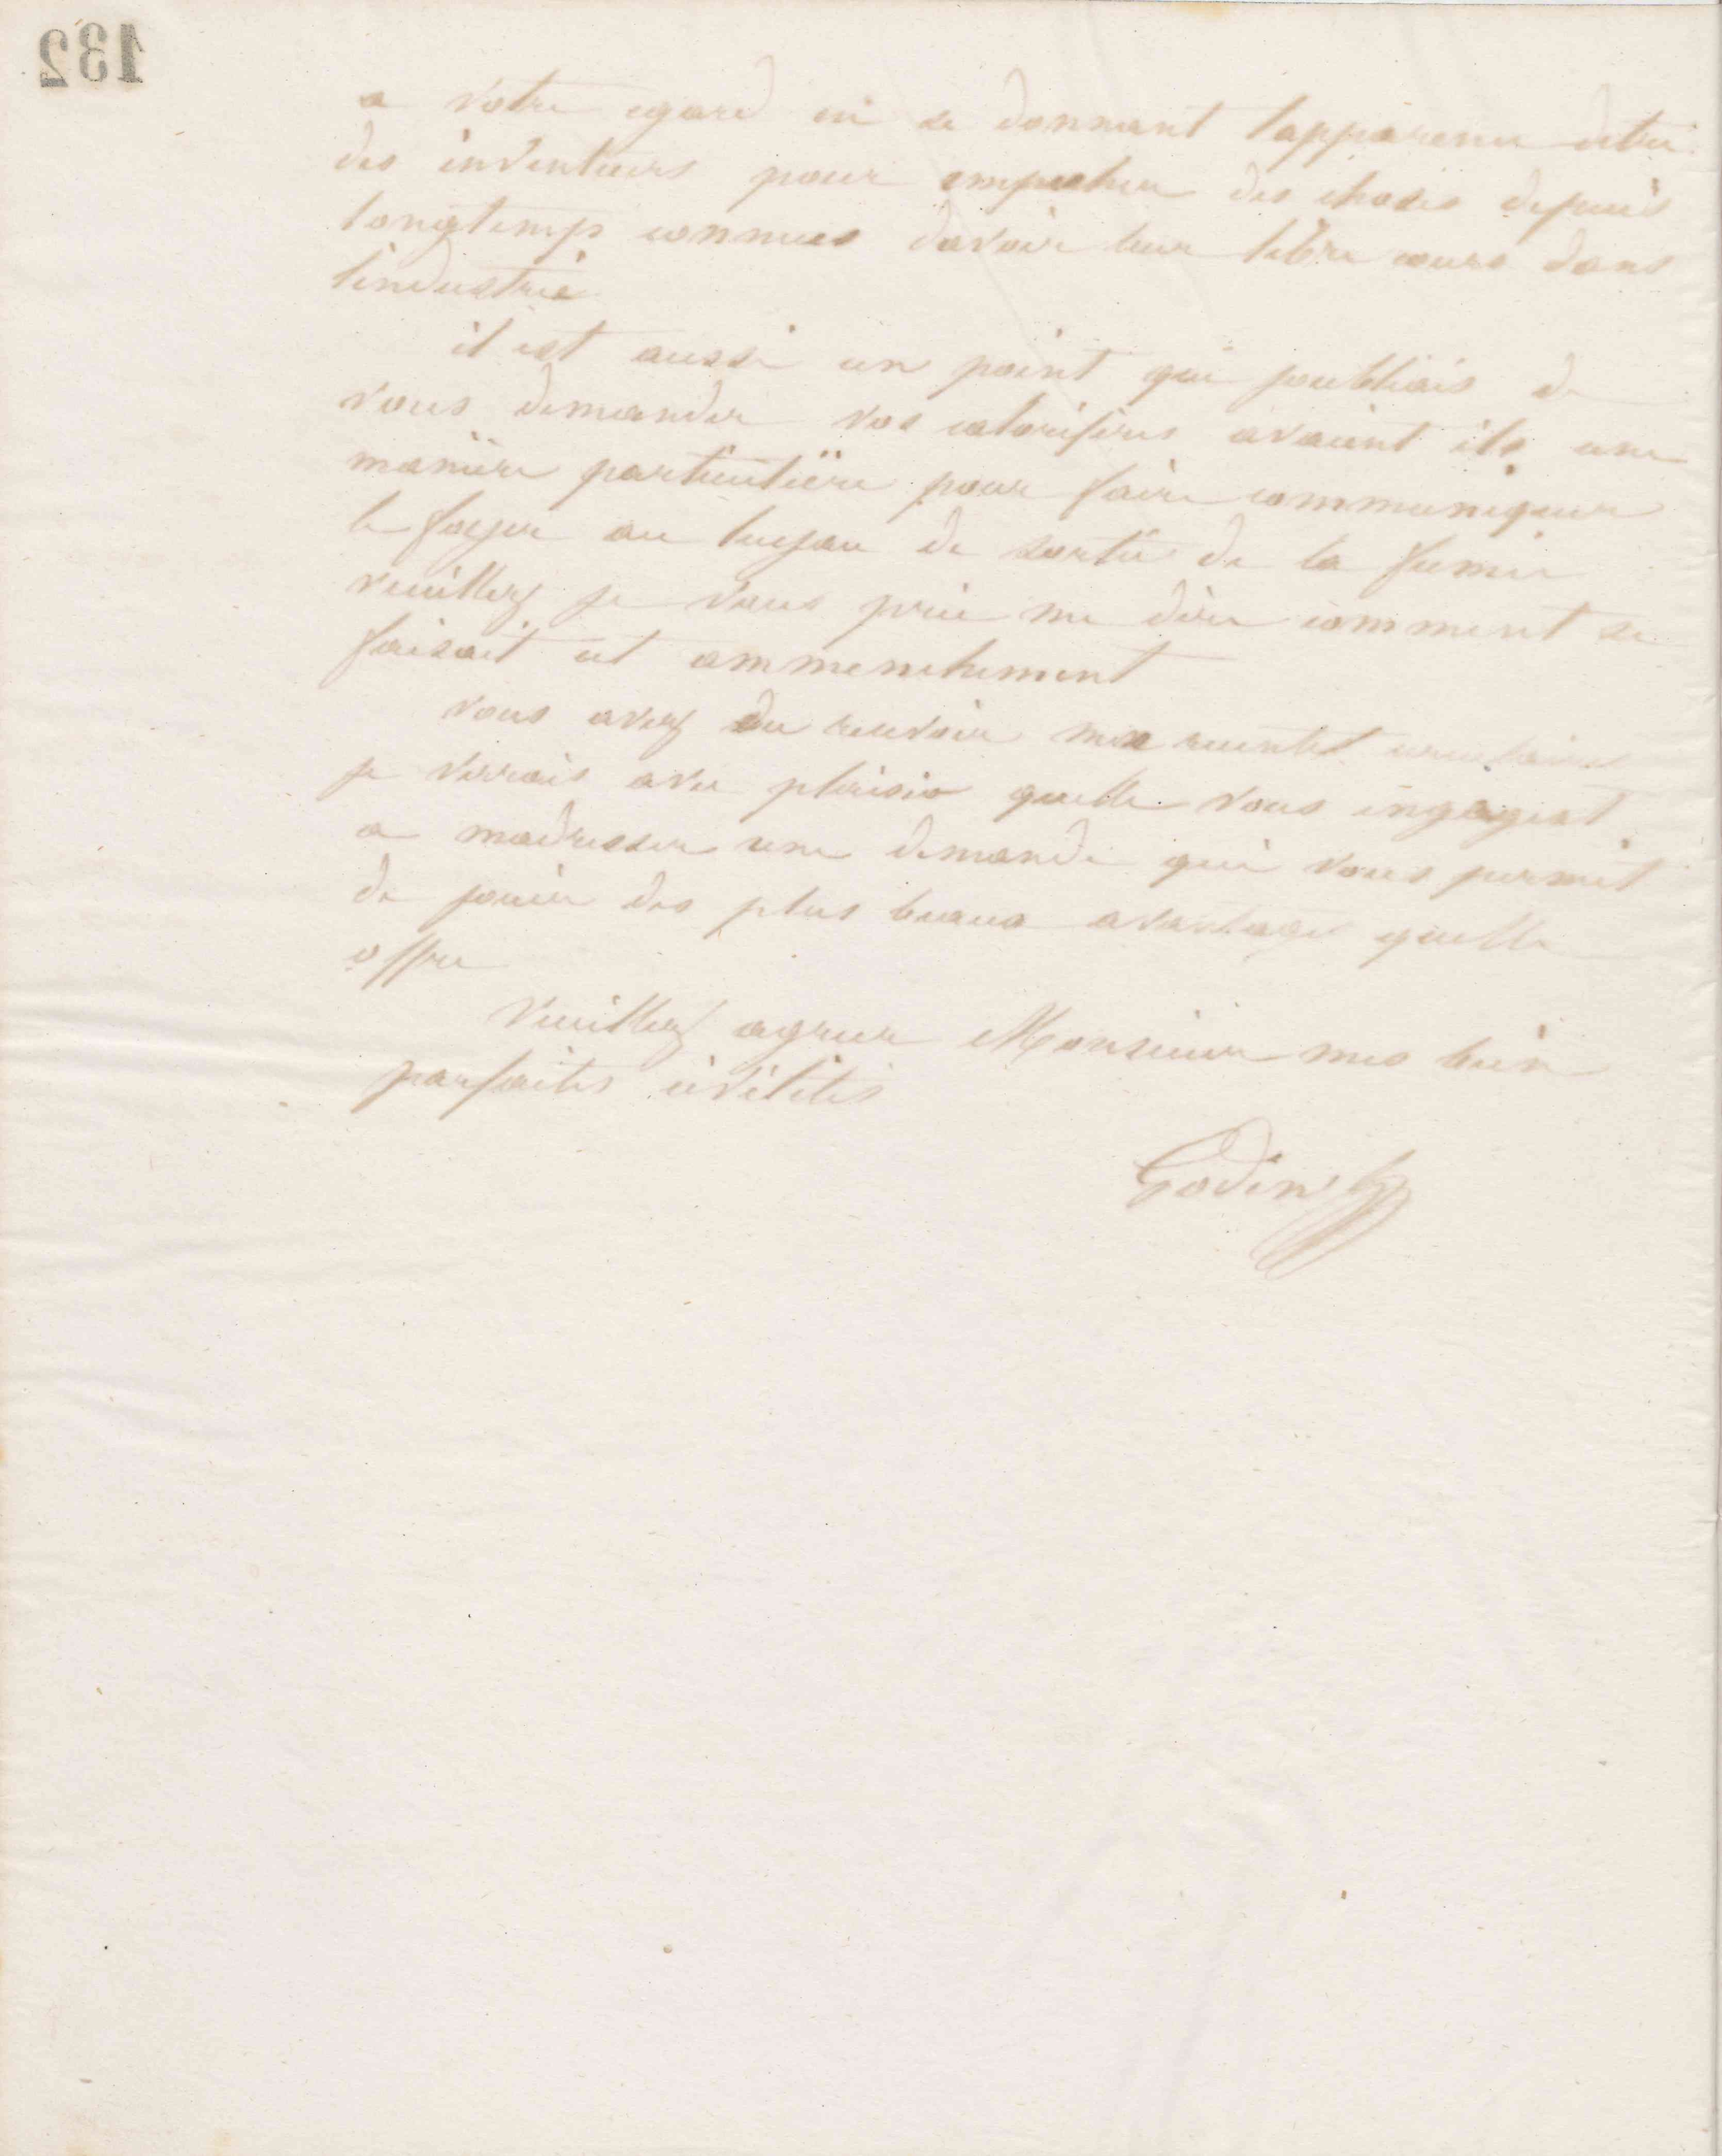 132
a votre egard en se donnant lapparence detre
des inventeurs pour empecher des choses depuis
longtemps connues davoir leur libre cours dans
lindustrie
il est aussi un point que joubliais de
vous demander vos calorifères avaient ils une
manière particulière pour faire communiquer
le foyer au tuyau de sortie de la fumée
veuillez je vous prie me dire comment se
faisait cet emmenchement
vous avez du recevoir ma recente circulaire
je verrais avec plaisir quelle vous engageat
a madresser une demande qui vous permit
de jouir des plus beaux avantages quelle
offre
Veuillez agreer Monsieur mes bien
parfaites civilités
Godin